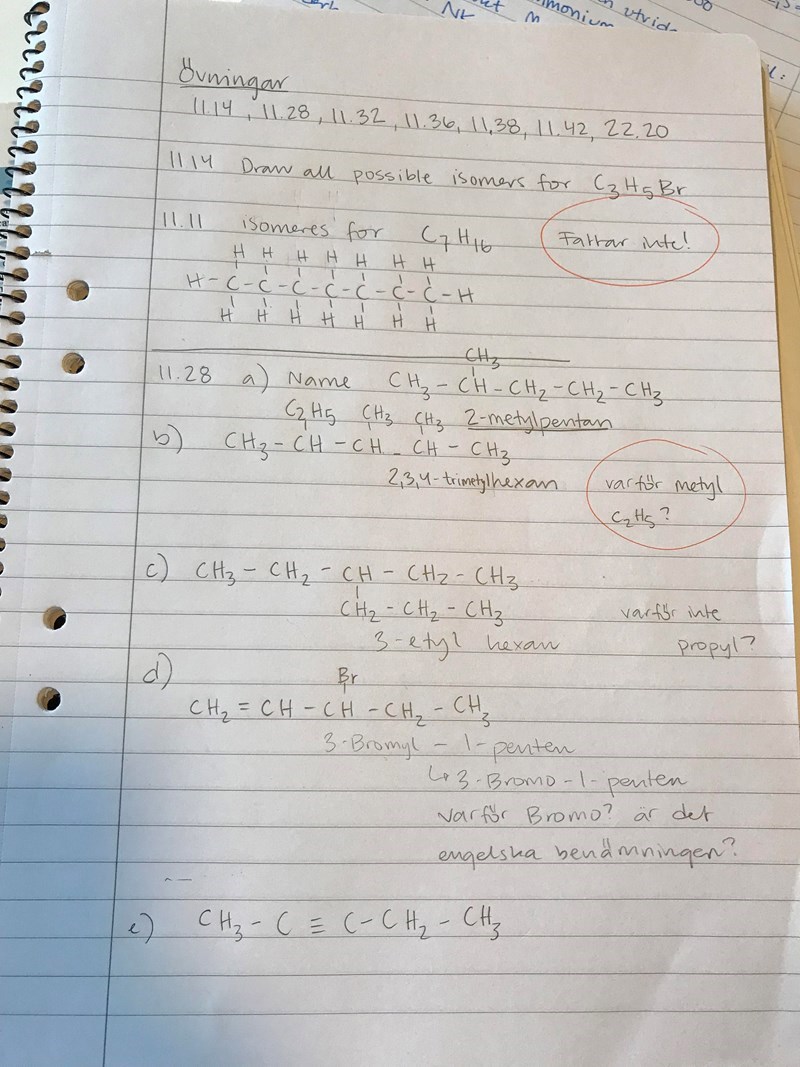 Nt
m
mmonium
utrid
Övningar
11.14, 11.28, 11.32, 11.36, 11,38, 11.42, 22.20
11.14 Draw all possible isomers for C₃H₅Br
11.11 isomeres for C₇H₁₆ Fattar inte!
H H H H H H H
H - C - C - C - C - C - C - C - H
H H H H H H H
CH₃
11.28 a) Name CH₃ - CH - CH₂ - CH₂ - CH₃
C₂H₅ CH₃ CH₃ 2-metylpentan
b) CH₃ - CH - CH - CH - CH₃
2,3,4-trimetylhexan varför metyl
C₂H₅?
c) CH₃ - CH₂ - CH - CH₂ - CH₃
CH₂ - CH₂ - CH₃ varför inte
3-etyl hexan propyl?
d) Br
CH₂ = CH - CH - CH₂ - CH₃
3-Bromyl - 1-penten
↳ 3-Bromo-1-penten
Varför Bromo? är det
engelska benämningen?
e) CH₃ - C ≡ C - CH₂ - CH₃